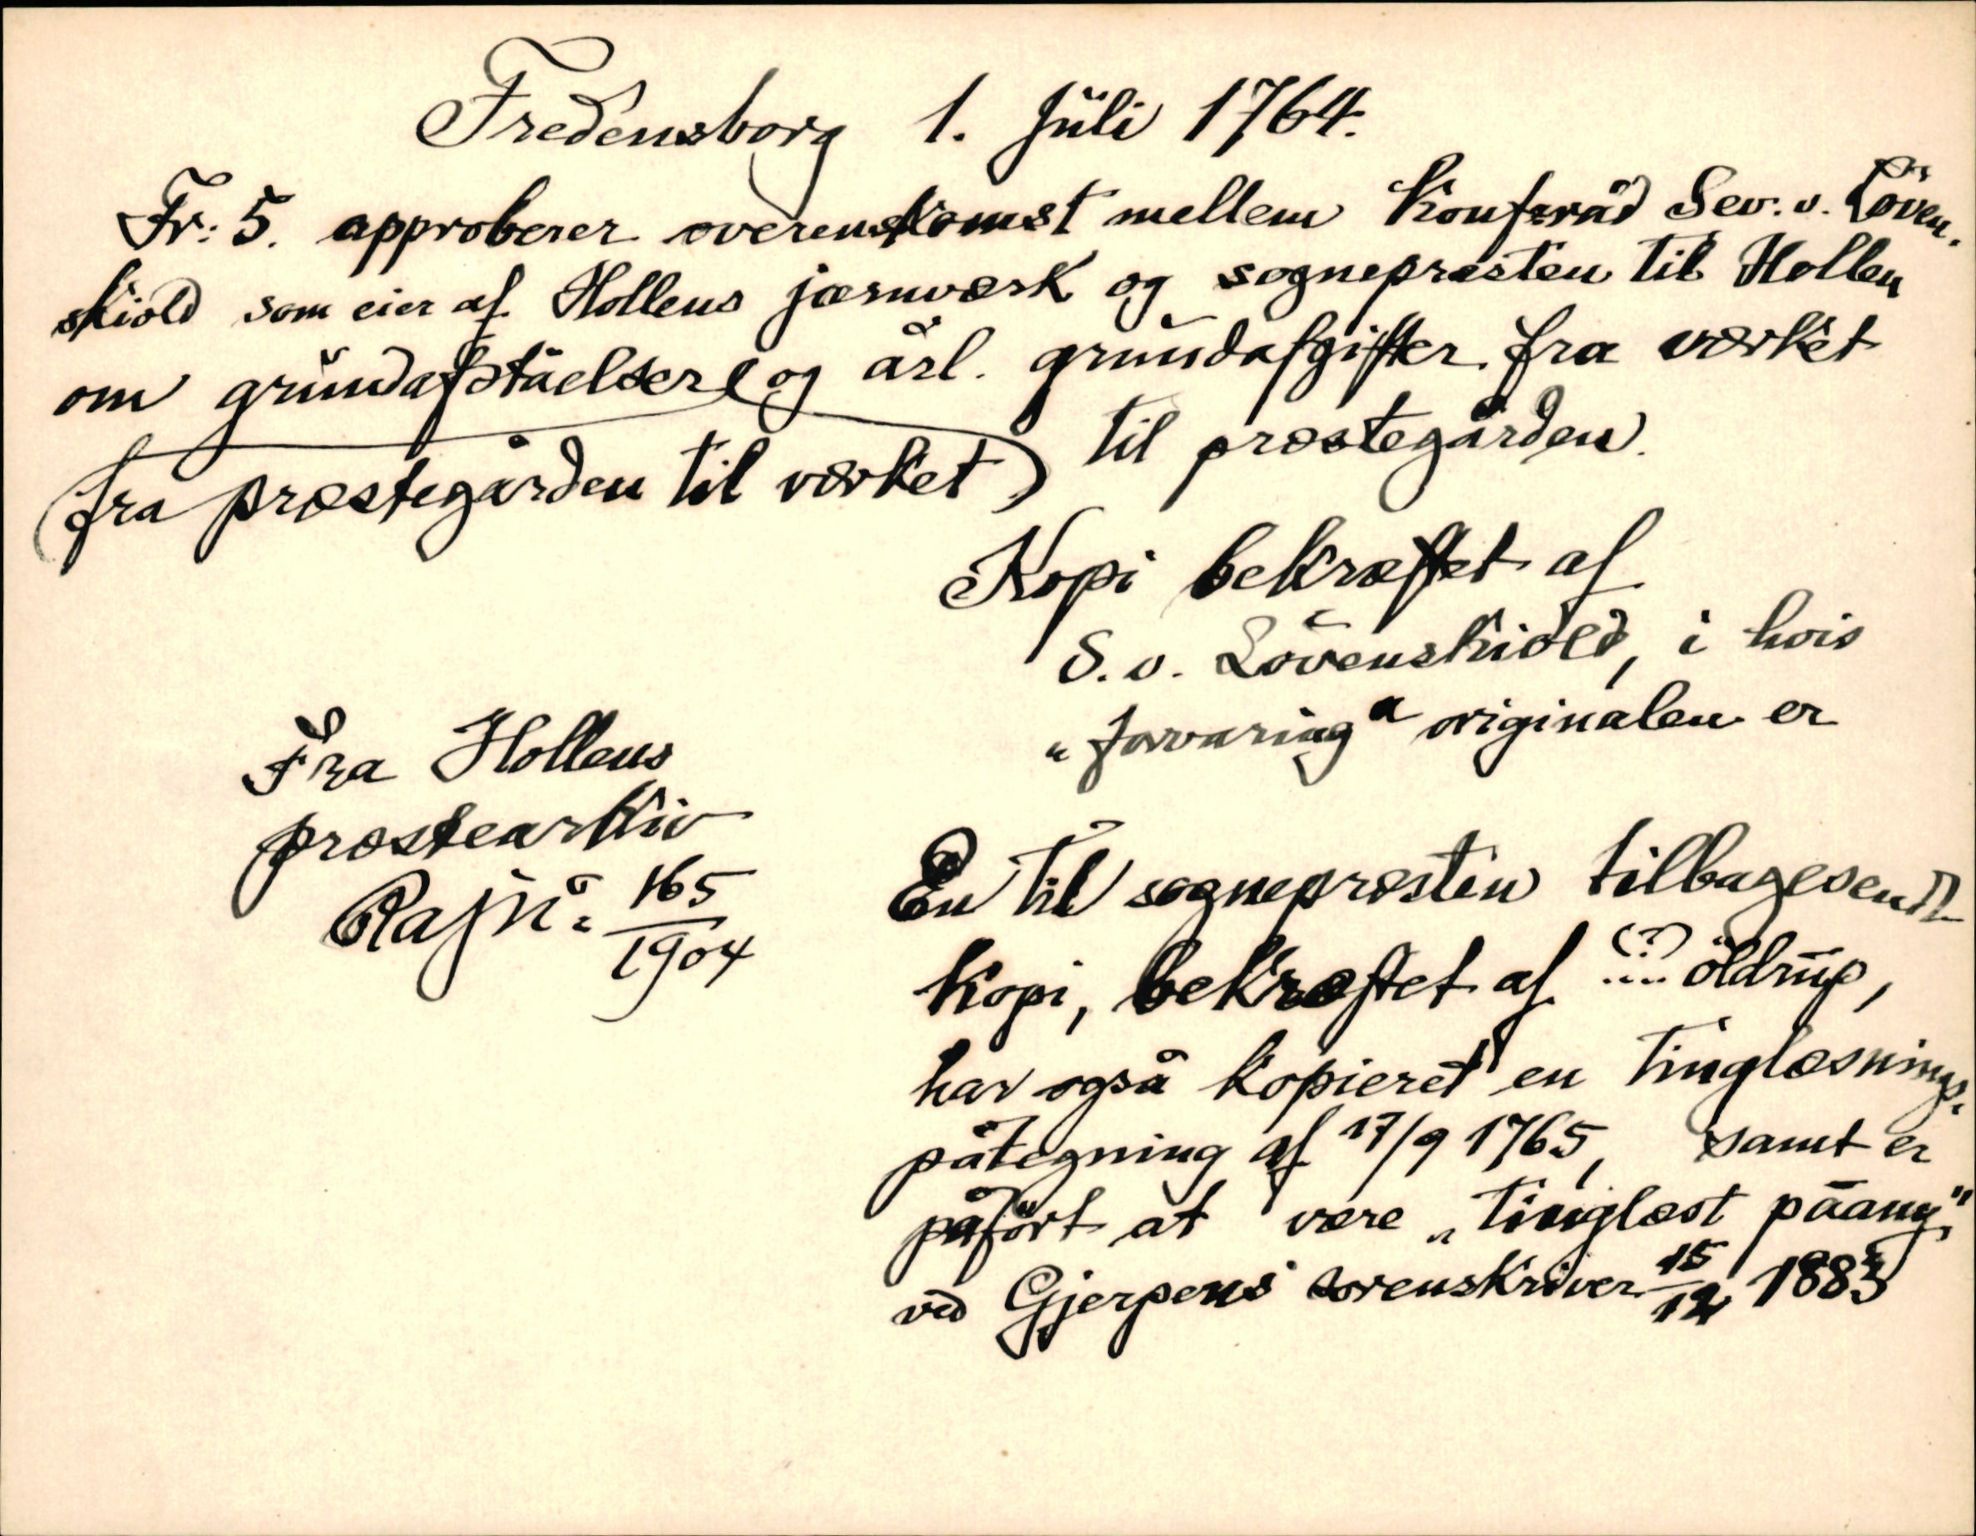 Fredensborg 1. Juli 1764.
Fr: 5. approberer overenskomst mellem Konfzråd Sev. v. Löven-
skiold som eier af Hollens jærnværk og sognepræsten til Hollen
om grundafståelser og årl. grundafgifter fra værket
(fra præstegården til værket) til præstegården.
Kopi bekræftet af
S. v. Lövenskiold, i hvis
„forvaring“ originalen er
Fra Hollens
præstearkiv
Rajnº: 165/1904
En til sognepræsten tilbagesendt
kopi, bekræftet af (?) .... öldrup,
har også kopieret en tinglæsnings-
påtegning af 17/9 1765, samt er
påfört at være „tinglæst påany“
ved Gjerpens sorenskriver 15/12 1883